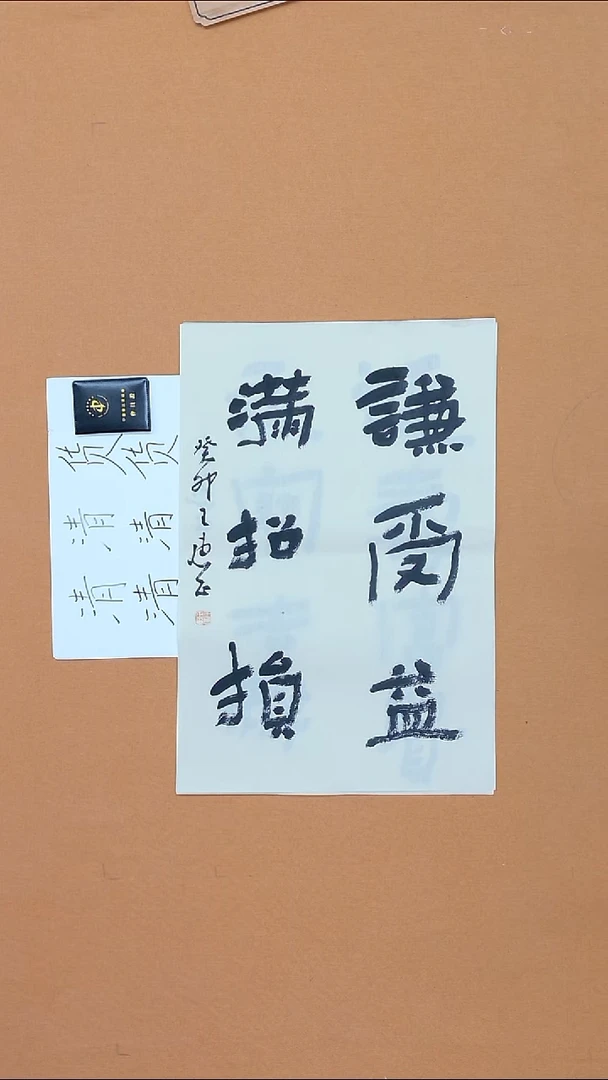 謙受益
滿招損
癸卯王
货 清 清
货 清 清